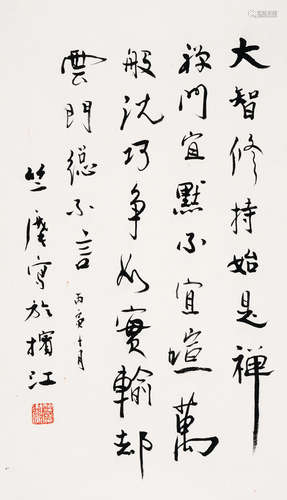 大智修持始是禪
禪門宜默不宜喧萬
般說巧爭如實輸却
雲門總不言
丙寅十月
竺摩寫於檳江